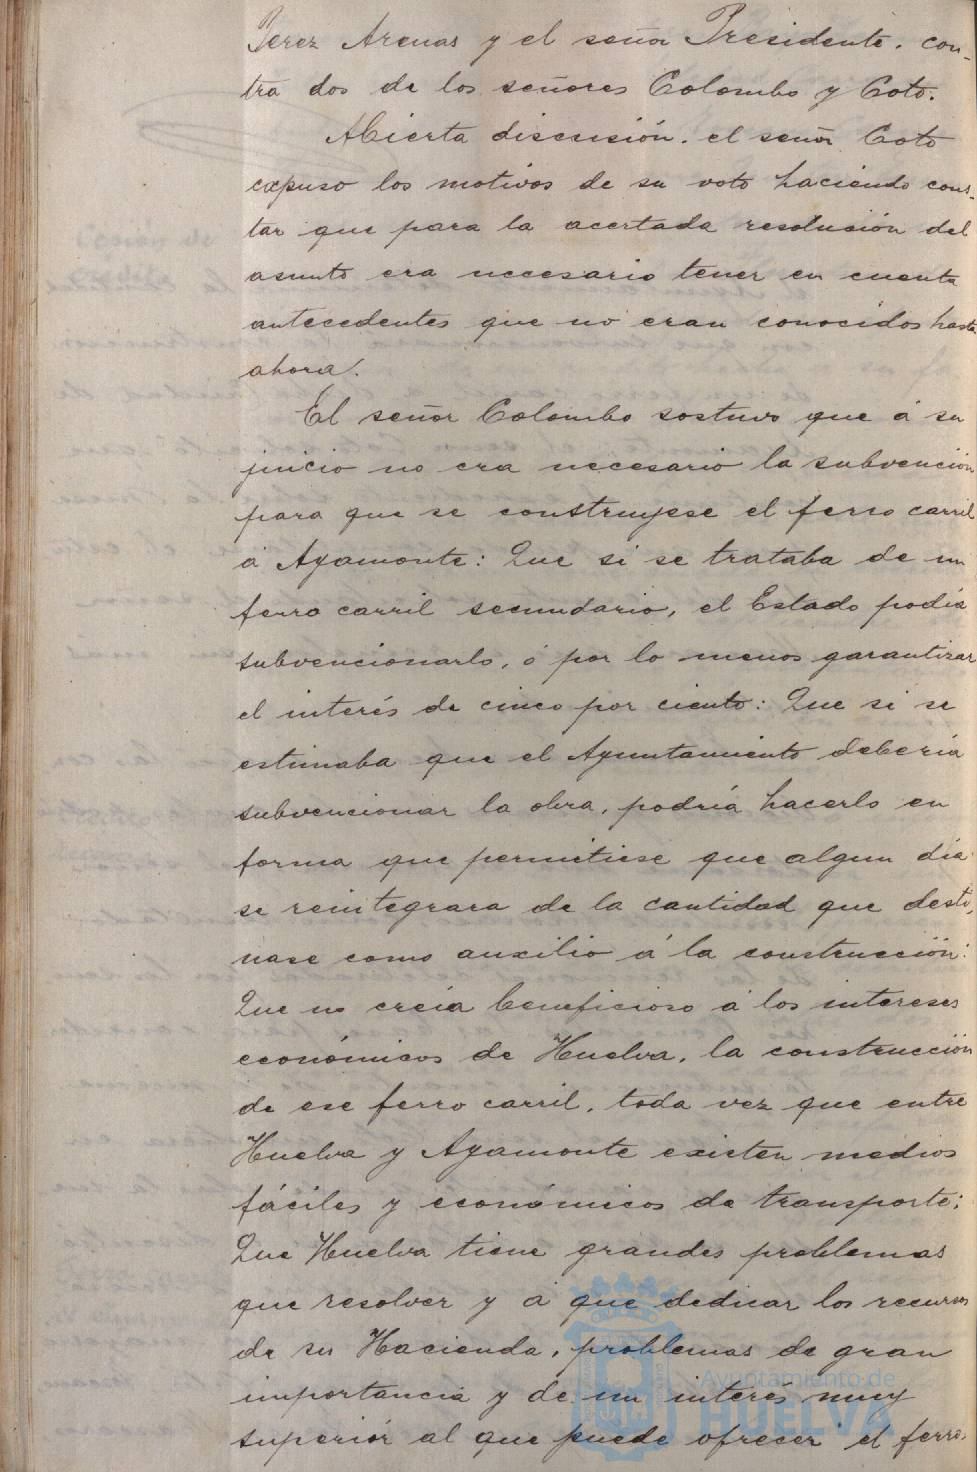 Perez Arenas y el señor Presidente, con-
tra dos de los señores Colombo y Coto.
Abierta discusión, el señor Coto
expuso los motivos de su voto haciendo cons-
tar que para la acertada resolución del
asunto era necesario tener en cuenta
antecedentes que no eran conocidos hasta
ahora.
El señor Colombo sostuvo que á su
juicio no era necesario la subvención
para que se construyese el ferro carril
á Ayamonte: Que si se trataba de un
ferro carril secundario, el Estado podía
subvencionarlo, ó por lo menos garantizar
el interés de cinco por ciento: Que si se
estimaba que el Ayuntamiento debería
subvencionar la obra, podría hacerlo en
forma que permitiese que algun día
se reintegrara de la cantidad que desti-
nase como auxilio á la construcción:
Que no creía beneficioso á los intereses
económicos de Huelva, la construcción
de ese ferro carril, toda vez que entre
Huelva y Ayamonte existen medios
fáciles y económicos de transporte:
Que Huelva tiene grandes problemas
que resolver y á que dedicar los recursos
de su Hacienda, problemas de gran
importancia y de un interés muy
superior al que puede ofrecer el ferro-
Ayuntamiento de
HUELVA